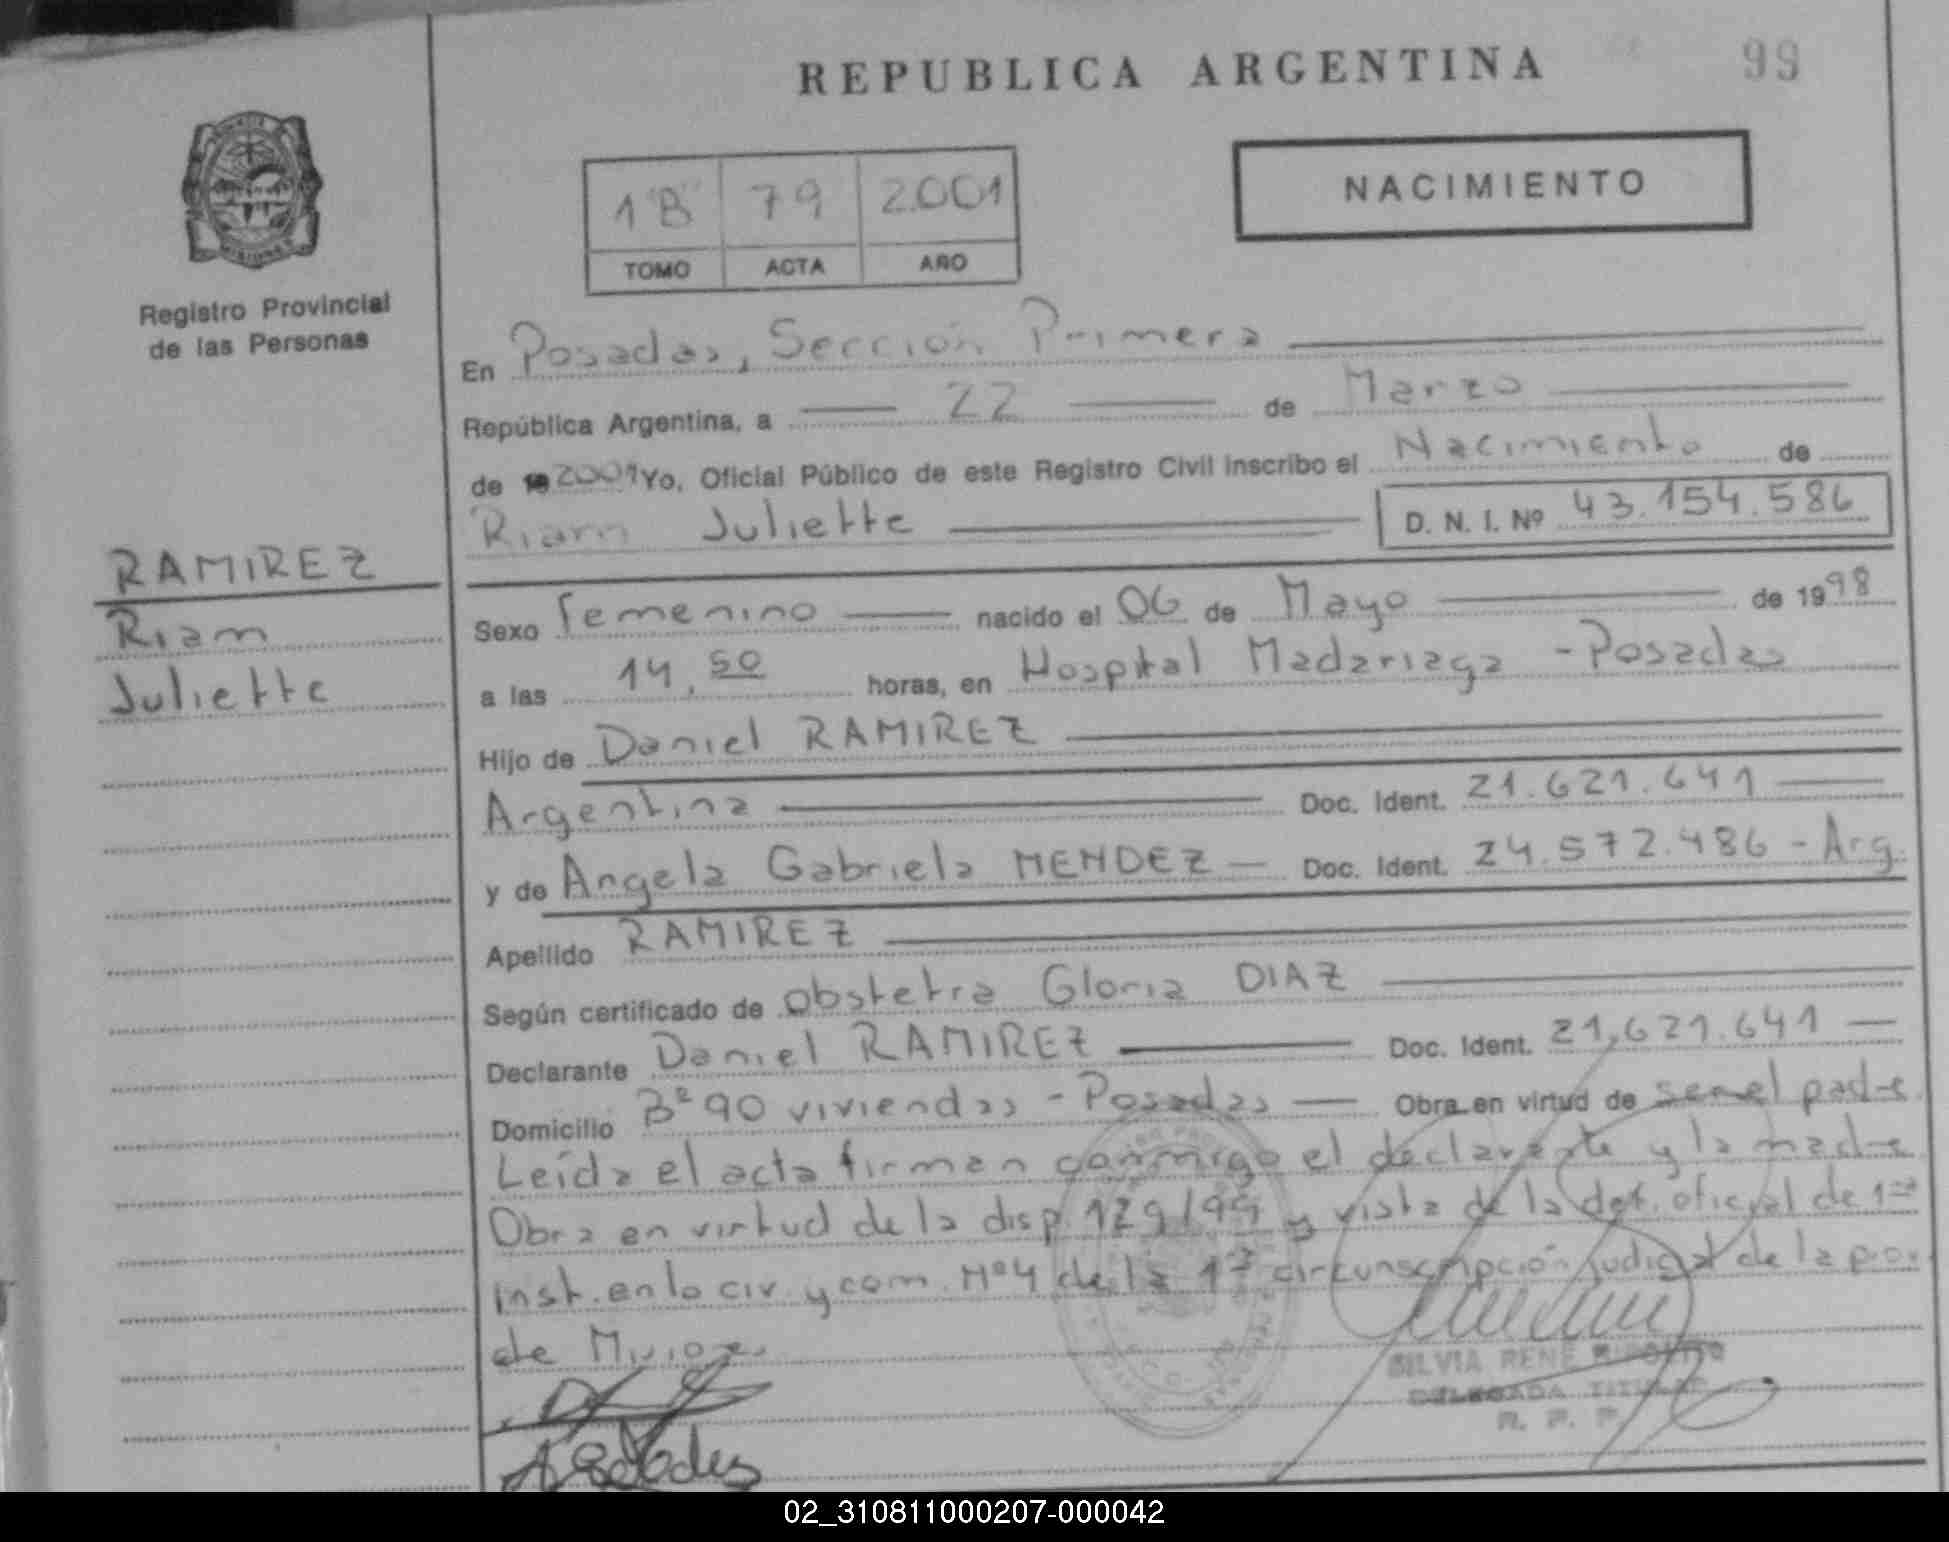 REPUBLICA ARGENTINA
99
1"B" 79 2.001
TOMO ACTA AÑO
NACIMIENTO
Registro Provincial
de las Personas
En Posadas, Sección Primera
República Argentina, a 22 de Marzo
de 19 2001 Yo, Oficial Público de este Registro Civil inscribo el Nacimiento de
Riam Juliette
D. N. I. Nº 43.154.586
RAMIREZ
Riam
Juliette
Sexo Femenino nacido el 06 de Mayo de 1998
a las 14,50 horas, en Hospital Madariaga - Posadas
Hijo de Daniel RAMIREZ
Argentina Doc. Ident. 21.621.641
y de Angela Gabriela MENDEZ Doc. Ident. 24.572.486 - Arg.
Apellido RAMIREZ
Según certificado de obstetra Gloria DIAZ
Declarante Daniel RAMIREZ Doc. Ident. 21,621.641
Domicilio Bº 90 viviendas - Posadas Obra en virtud de ser el padre
Leída el acta firman conmigo el declarante y la madre
Obra en virtud de la disp. 129/99 y vista de la def. oficial de 1ra
inst. en lo civ. y com. Nº 4 de la 1ª circunscripción judicial de la pro.
de Misiones
SILVIA RENE
DELEGADA TITULAR
R. P. P.
02_310811000207-000042